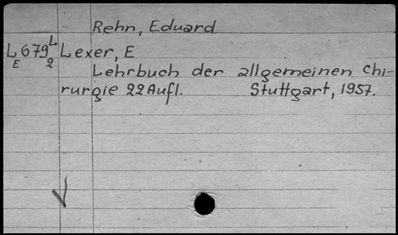 Rehn, Eduard
L E 679 L 2 Lexer, E
Lehrbuch der allgemeinen Chi-
rurgie 22 Aufl. Stuttgart, 1957.